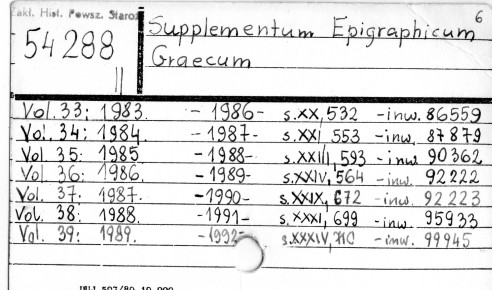 Zakł. Hist. Powsz. Staroż
6
54288
II
Supplementum Epigraphicum
Graecum
Vol. 33: 1983. - 1986 - s. XX, 532 - inw. 86559
Vol. 34: 1984. - 1987 - s. XXI 553 - inw. 87879
Vol. 35: 1985 - 1988 - s. XXIII, 593 - inw. 90362
Vol. 36: 1986. - 1989 - s. XXIV, 564 - inw. 92222
Vol. 37. 1987. - 1990 - s. XXIX, 672 - inw. 92223
Vol. 38: 1988. - 1991 - s. XXXI, 699 - inw. 95933
Vol. 39: 1989. - 1992 - s. XXXIV, 710 - inw. 99945